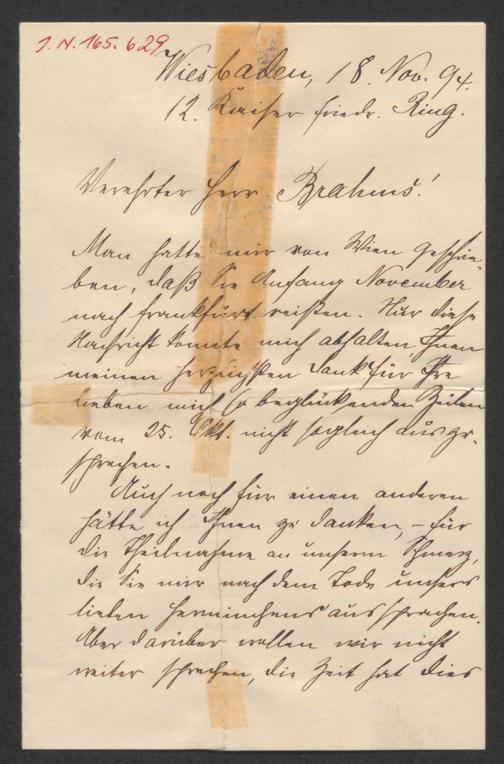 J. N. 165.629
Wiesbaden, 18. Nov. 94.
12. Kaiser Friedr. Ring.
Verehrter Herr Brahms!
Man hatte mir von Wien geschrie-
ben, daß Sie Anfang November
nach Frankfurt reisten. Nur diese
Nachricht konnte mich abhalten Ihnen
meinen herzlichsten Dank für Ihre
lieben mich so beglückenden Zeilen
vom 25. Okt. nicht sogleich auszu-
sprechen.
Auch noch für einen anderen
hätte ich Ihnen zu danken, – für
die Theilnahme an unserm Schmerz,
die Sie mir nach dem Tode unsers
lieben Herminchens aussprachen.
Aber darüber wollen wir nicht
weiter sprechen, die Zeit hat dies